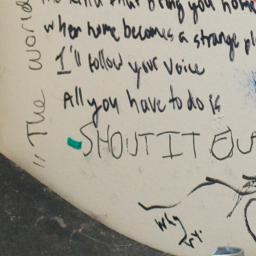 that bring you home
when home becomes a strange pl
I'll follow your voice
All you have to do is
SHOUT IT OU
"The world
Why